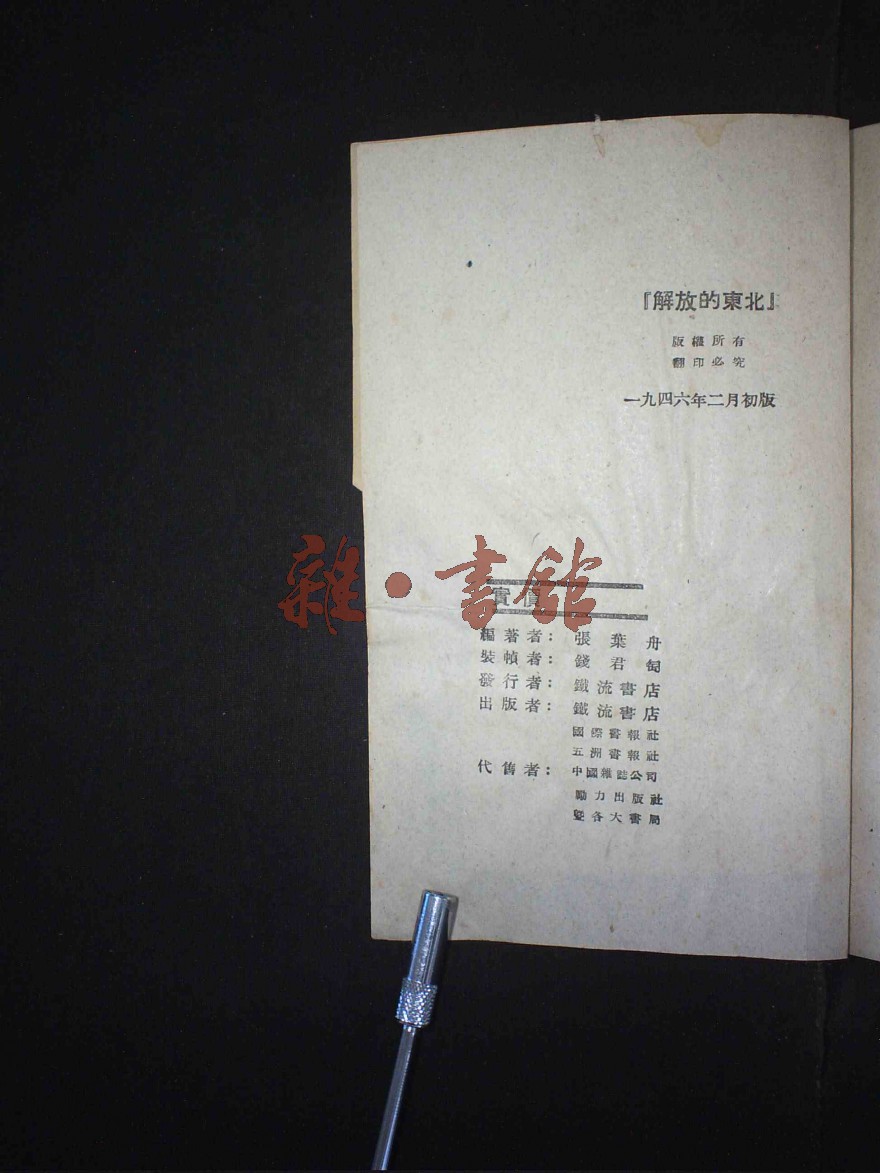 『解放的東北』
版權所有
翻印必究
一九四六年二月初版
雜·書館
實價
編著者：張葉舟
裝幀者：錢君匋
發行者：鐵流書店
出版者：鐵流書店
國際書報社
五洲書報社
代售者：中國雜誌公司
勵力出版社
暨各大書局